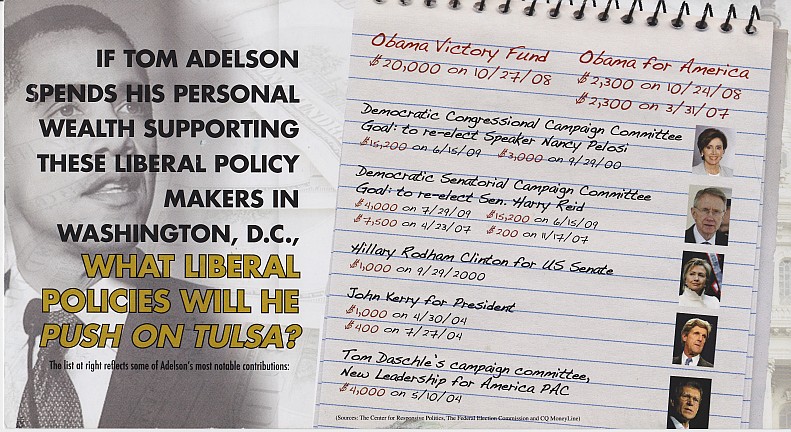 IF TOM ADELSON
SPENDS HIS PERSONAL
WEALTH SUPPORTING
THESE LIBERAL POLICY
MAKERS IN
WASHINGTON, D.C.,
WHAT LIBERAL
POLICIES WILL HE
PUSH ON TULSA?
The list at right reflects some of Adelson's most notable contributions:
Obama Victory Fund
$20,000 on 10/27/08
Obama for America
$2,300 on 10/24/08
$2,300 on 3/31/07
Democratic Congressional Campaign Committee
Goal: to re-elect Speaker Nancy Pelosi
$15,200 on 6/15/09 $3,000 on 9/29/00
Democratic Senatorial Campaign Committee
Goal: to re-elect Sen. Harry Reid
$4,000 on 7/29/09 $15,200 on 6/15/09
$7,500 on 4/23/07 $200 on 11/17/07
Hillary Rodham Clinton for US Senate
$1,000 on 9/29/2000
John Kerry for President
$1,000 on 4/30/04
$400 on 7/27/04
Tom Daschle's campaign committee,
New Leadership for America PAC
$4,000 on 5/10/04
(Sources: The Center for Responsive Politics, The Federal Election Commission and CQ MoneyLine)